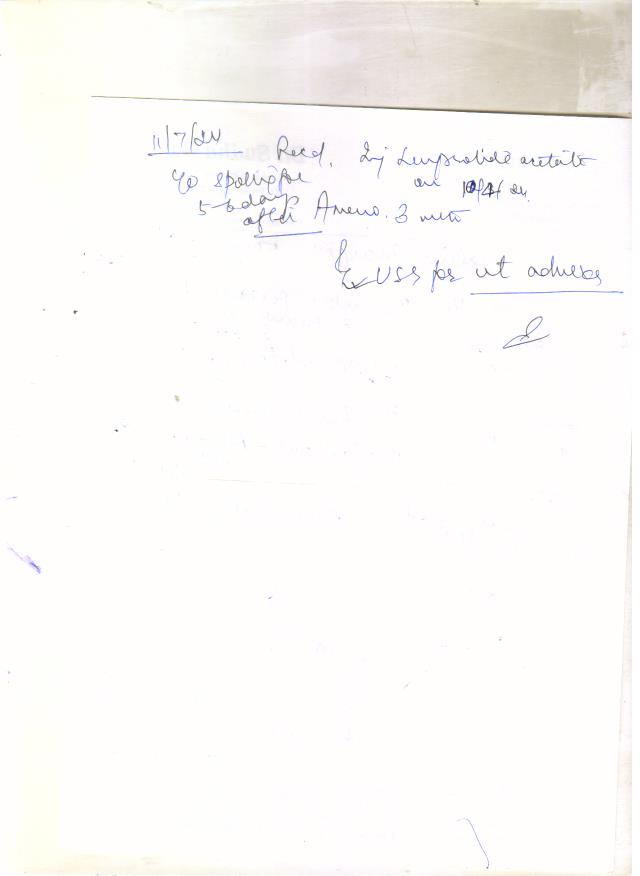 11/7/24 Recd. Inj Leuprolide acetate
c/o spotting for on 10/4/24.
5-6 days
after Ameno. 3 mth
USG for ut adnexa